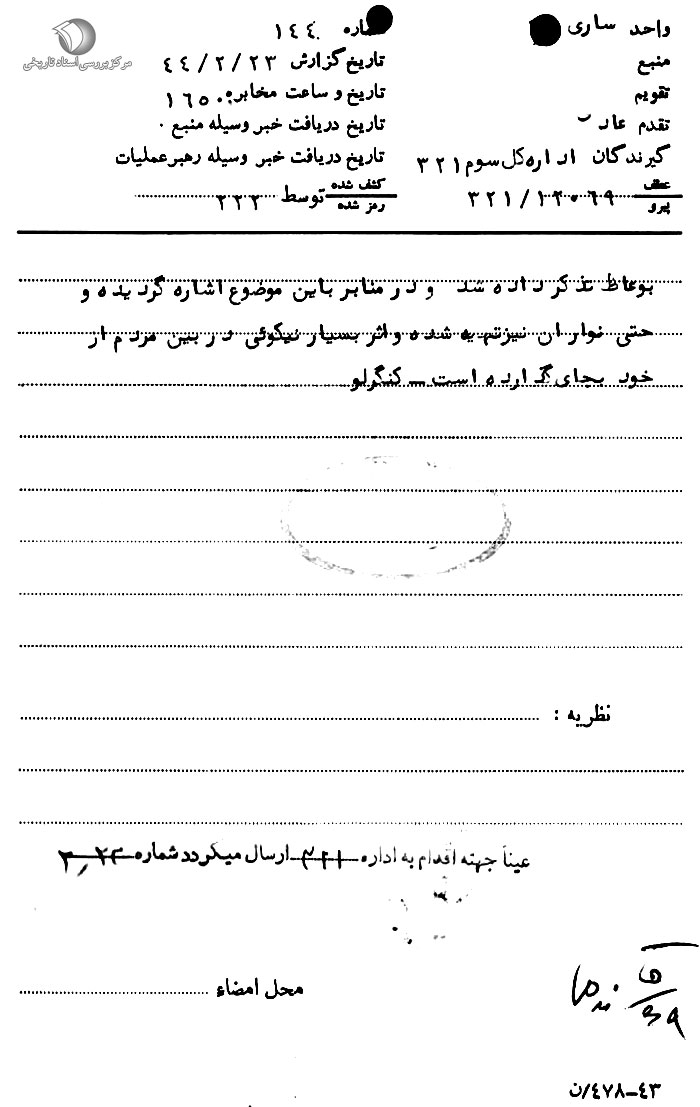 مرکز بررسی اسناد تاریخی
واحد ساری
شماره ۱۴۴
منبع
تاریخ گزارش ۴۴/۲/۲۳
تقویم
تاریخ و ساعت مخابره ۱۶۵۰
تقدم
تاریخ دریافت خبر وسیله منبع
گیرندگان اداره کل سوم ۳۲۱
تاریخ دریافت خبر وسیله رهبرعملیات
عطف
پیرو
۳۲۱/۱۲۰۶۹
کشف شده
رمز شده
توسط ۲۲۲
بوعاظ تذکر داده شد و در منابر باین موضوع اشاره گردیده و
حتی نوار ان نیز تهیه شده و اثر بسیار نیکوئی در بین مردم از
خود بجای گذارده است – کنگرلو
نظریه :
عیناً جهته اقدام به اداره ۳۲۱ ارسال میگردد شماره
محل امضاء
۴۷۸–۴۳/ن